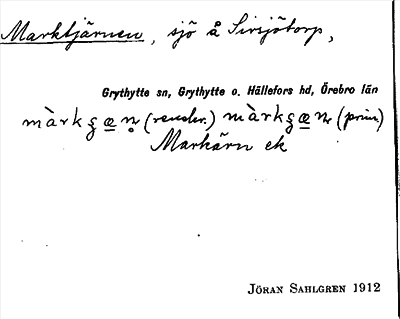 Marktjärnen, sjö å Sirsjötorp,
Grythytte sn, Grythytte o. Hällefors hd, Örebro län
(render.) (prim.)
Markärn ek
JÖRAN SAHLGREN 1912